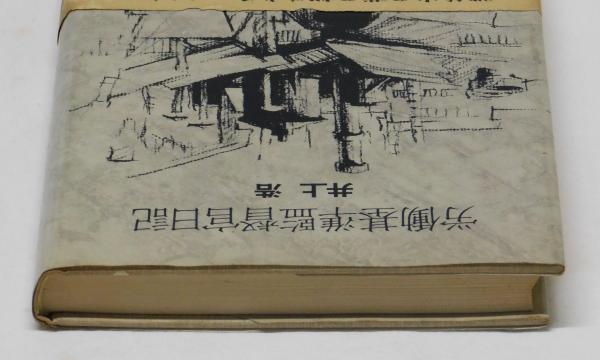 労働基準監督官日記
井上 浩